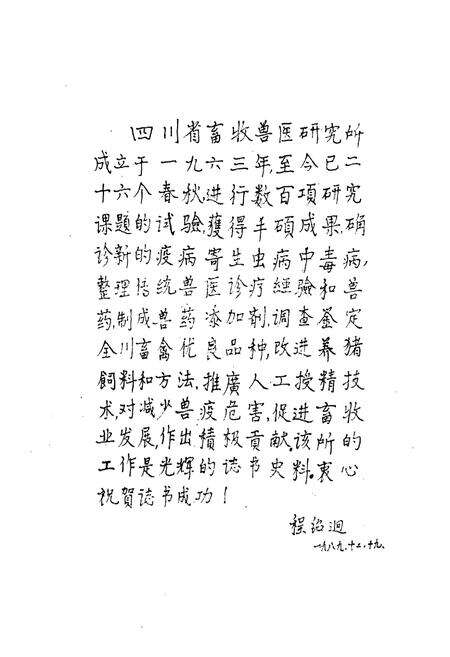 四川省畜牧兽医研究所
成立于一九六三年,至今已二
十六个春秋,进行数百项研究
课题的试验,獲得丰碩成果,确
诊新的疫病寄生虫病中毒病,
整理传统兽医诊疗經驗和兽
药,制成兽药添加剂,调查鉴定
全川畜禽优良品种,改进养猪
飼料和方法,推廣人工授精技
术对减少兽疫危害,促进畜牧
业发展,作出積极貢献.该所的
工作是光輝的誌书史料.衷心
祝賀誌书成功!
程绍迥
一九八九.十二.十九.